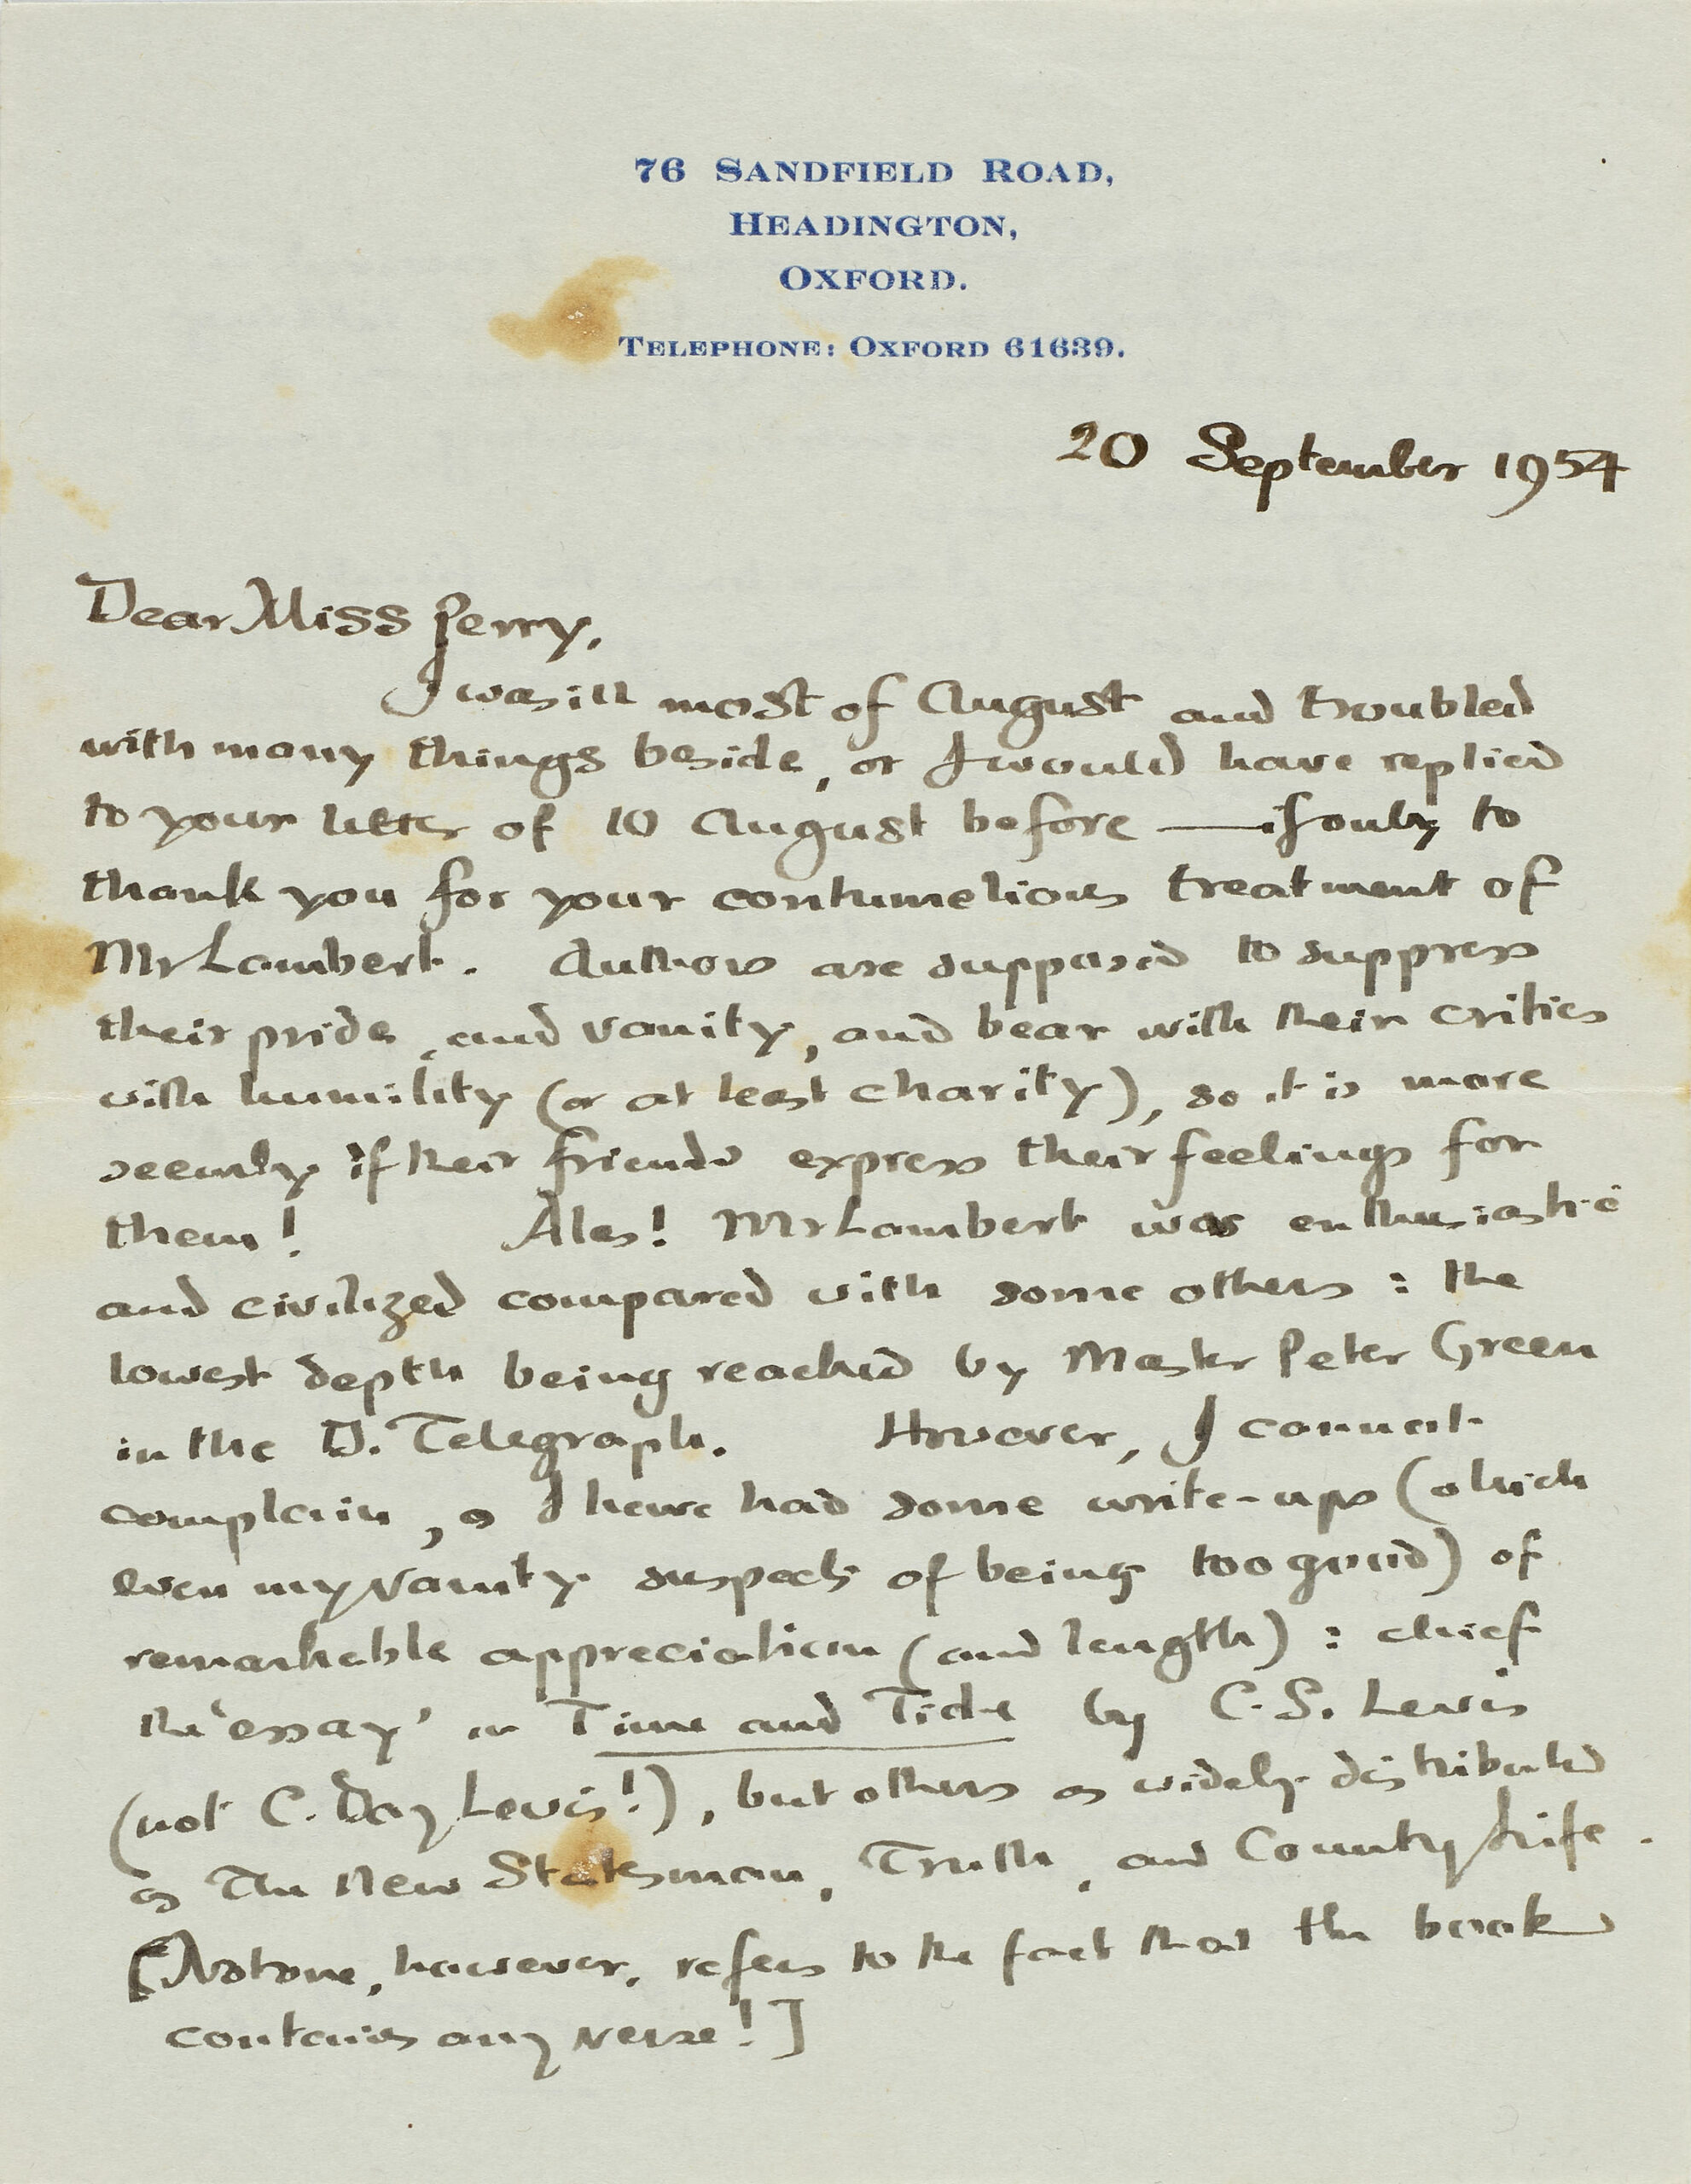 76 SANDFIELD ROAD,
HEADINGTON,
OXFORD.
TELEPHONE: OXFORD 61639.
20 September 1954
Dear Miss Perry,
I was ill most of August and troubled
with many things beside, or I would have replied
to your letter of 10 August before — if only to
thank you for your contumelious treatment of
Mr Lambert. Authors are supposed to suppress
their pride, and vanity, and bear with their critics
with humility (or at least charity), so it is more
seemly if their friends express their feelings for
them! Alas! Mr Lambert was enthusiastic
and civilized compared with some others : the
lowest depth being reached by Master Peter Green
in the D. Telegraph. However, I cannot
complain, as I have had some write-ups (which
even my vanity suspects of being too good) of
remarkable appreciation (and length) : chief
the 'essay' in Time and Tide by C. S. Lewis
(not C. Day Lewis!), but others as widely distributed
as The New Statesman, Truth, and Country Life.
[Not one, however, refers to the fact that the book
contains any verse!]